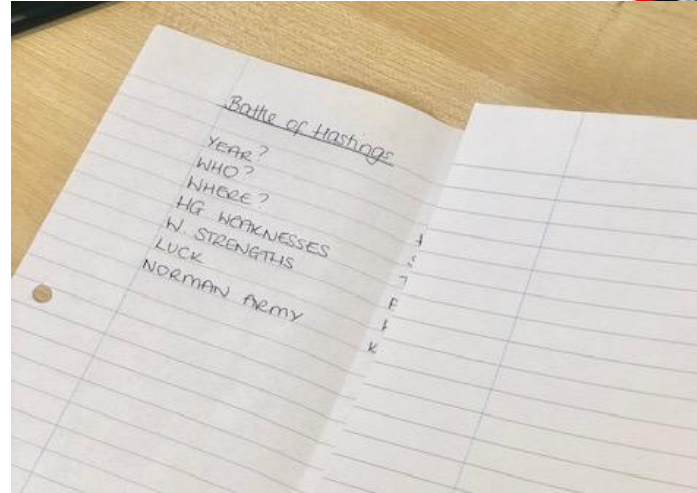 Battle of Hastings
YEAR?
WHO?
WHERE?
HG WEAKNESSES
W. STRENGTHS
LUCK
NORMAN ARMY
K